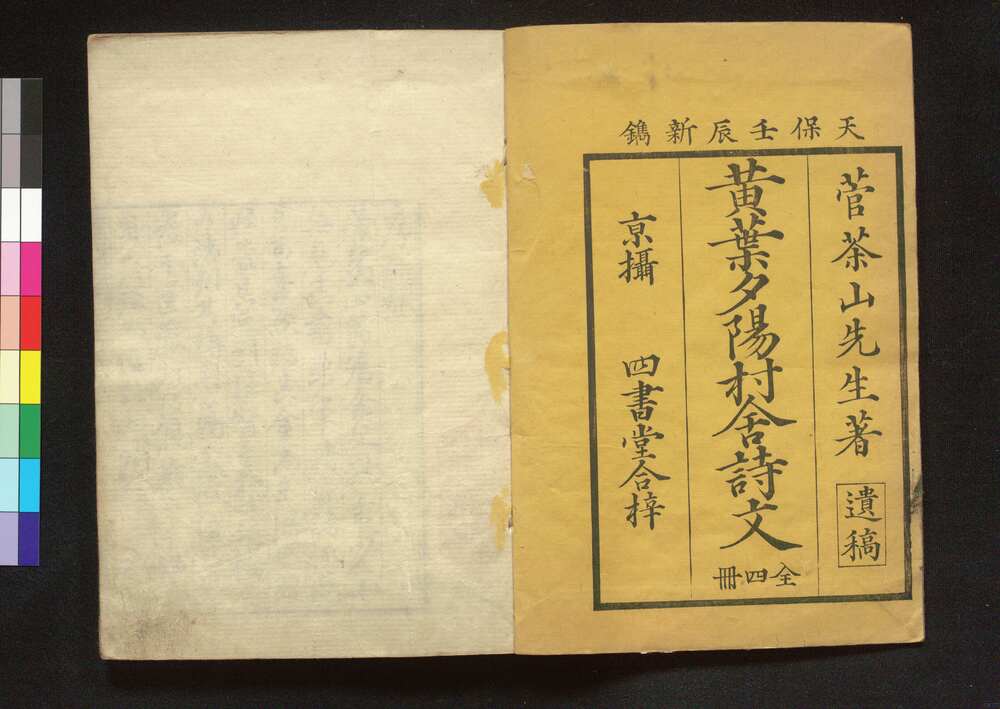 天保壬辰新鐫
菅茶山先生著 遺稿
黄葉夕陽村舎詩文
全四冊
京攝 四書堂合梓